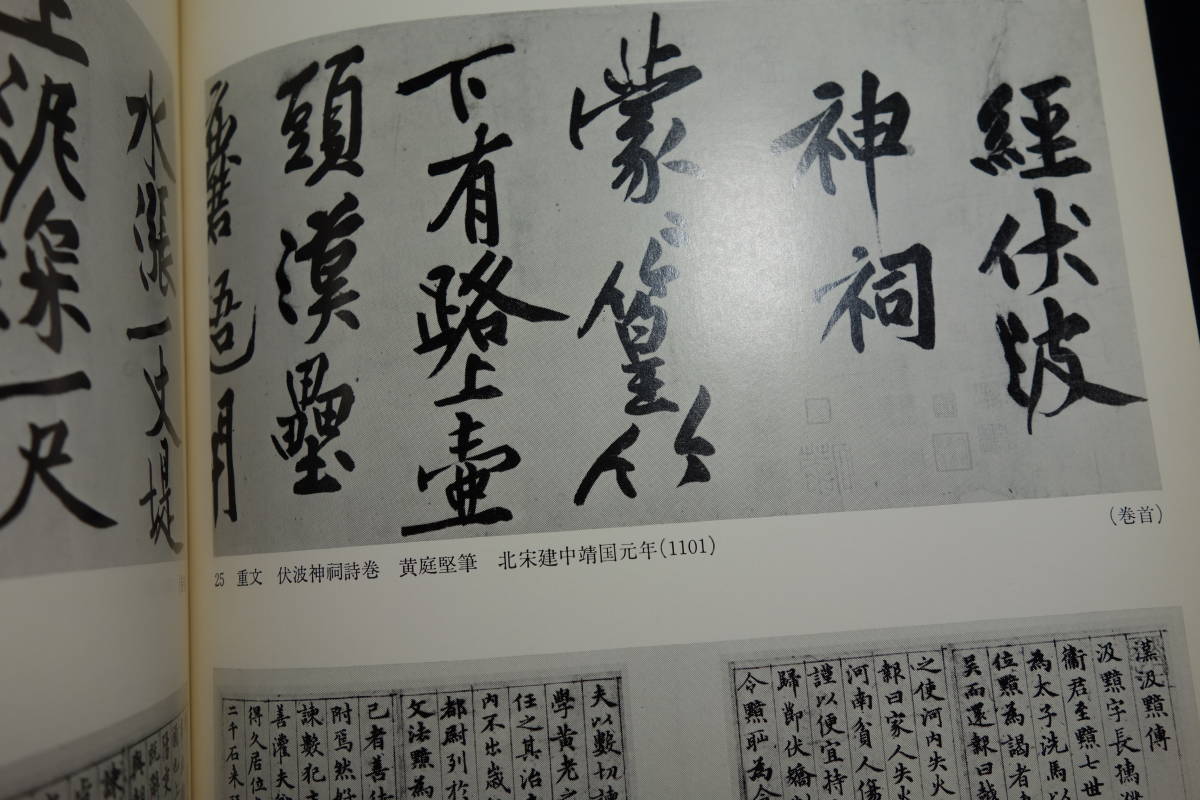 經伏波
神祠
蒙〻篁竹
下有路上壺
頭漢壘
水漲一丈堤
深一尺
(巻首)
25 重文 伏波神祠詩巻 黄庭堅筆 北宋建中靖国元年(1101)
漢汲黯傳
汲黯字長孺濮
衞君至黯七世
為太子洗馬以
位黯為謁者
吳而還報曰越
之使河内失火
報曰家人失火
河南貧人傷
謹以便宜持
歸節伏矯
令黯恥為令
夫以數切諫
學黃老之
任之其治
内不出歲
都尉列於
文法黯為
己者善待
附焉然好
諫數犯主
善灌夫
得久居位
二千石来